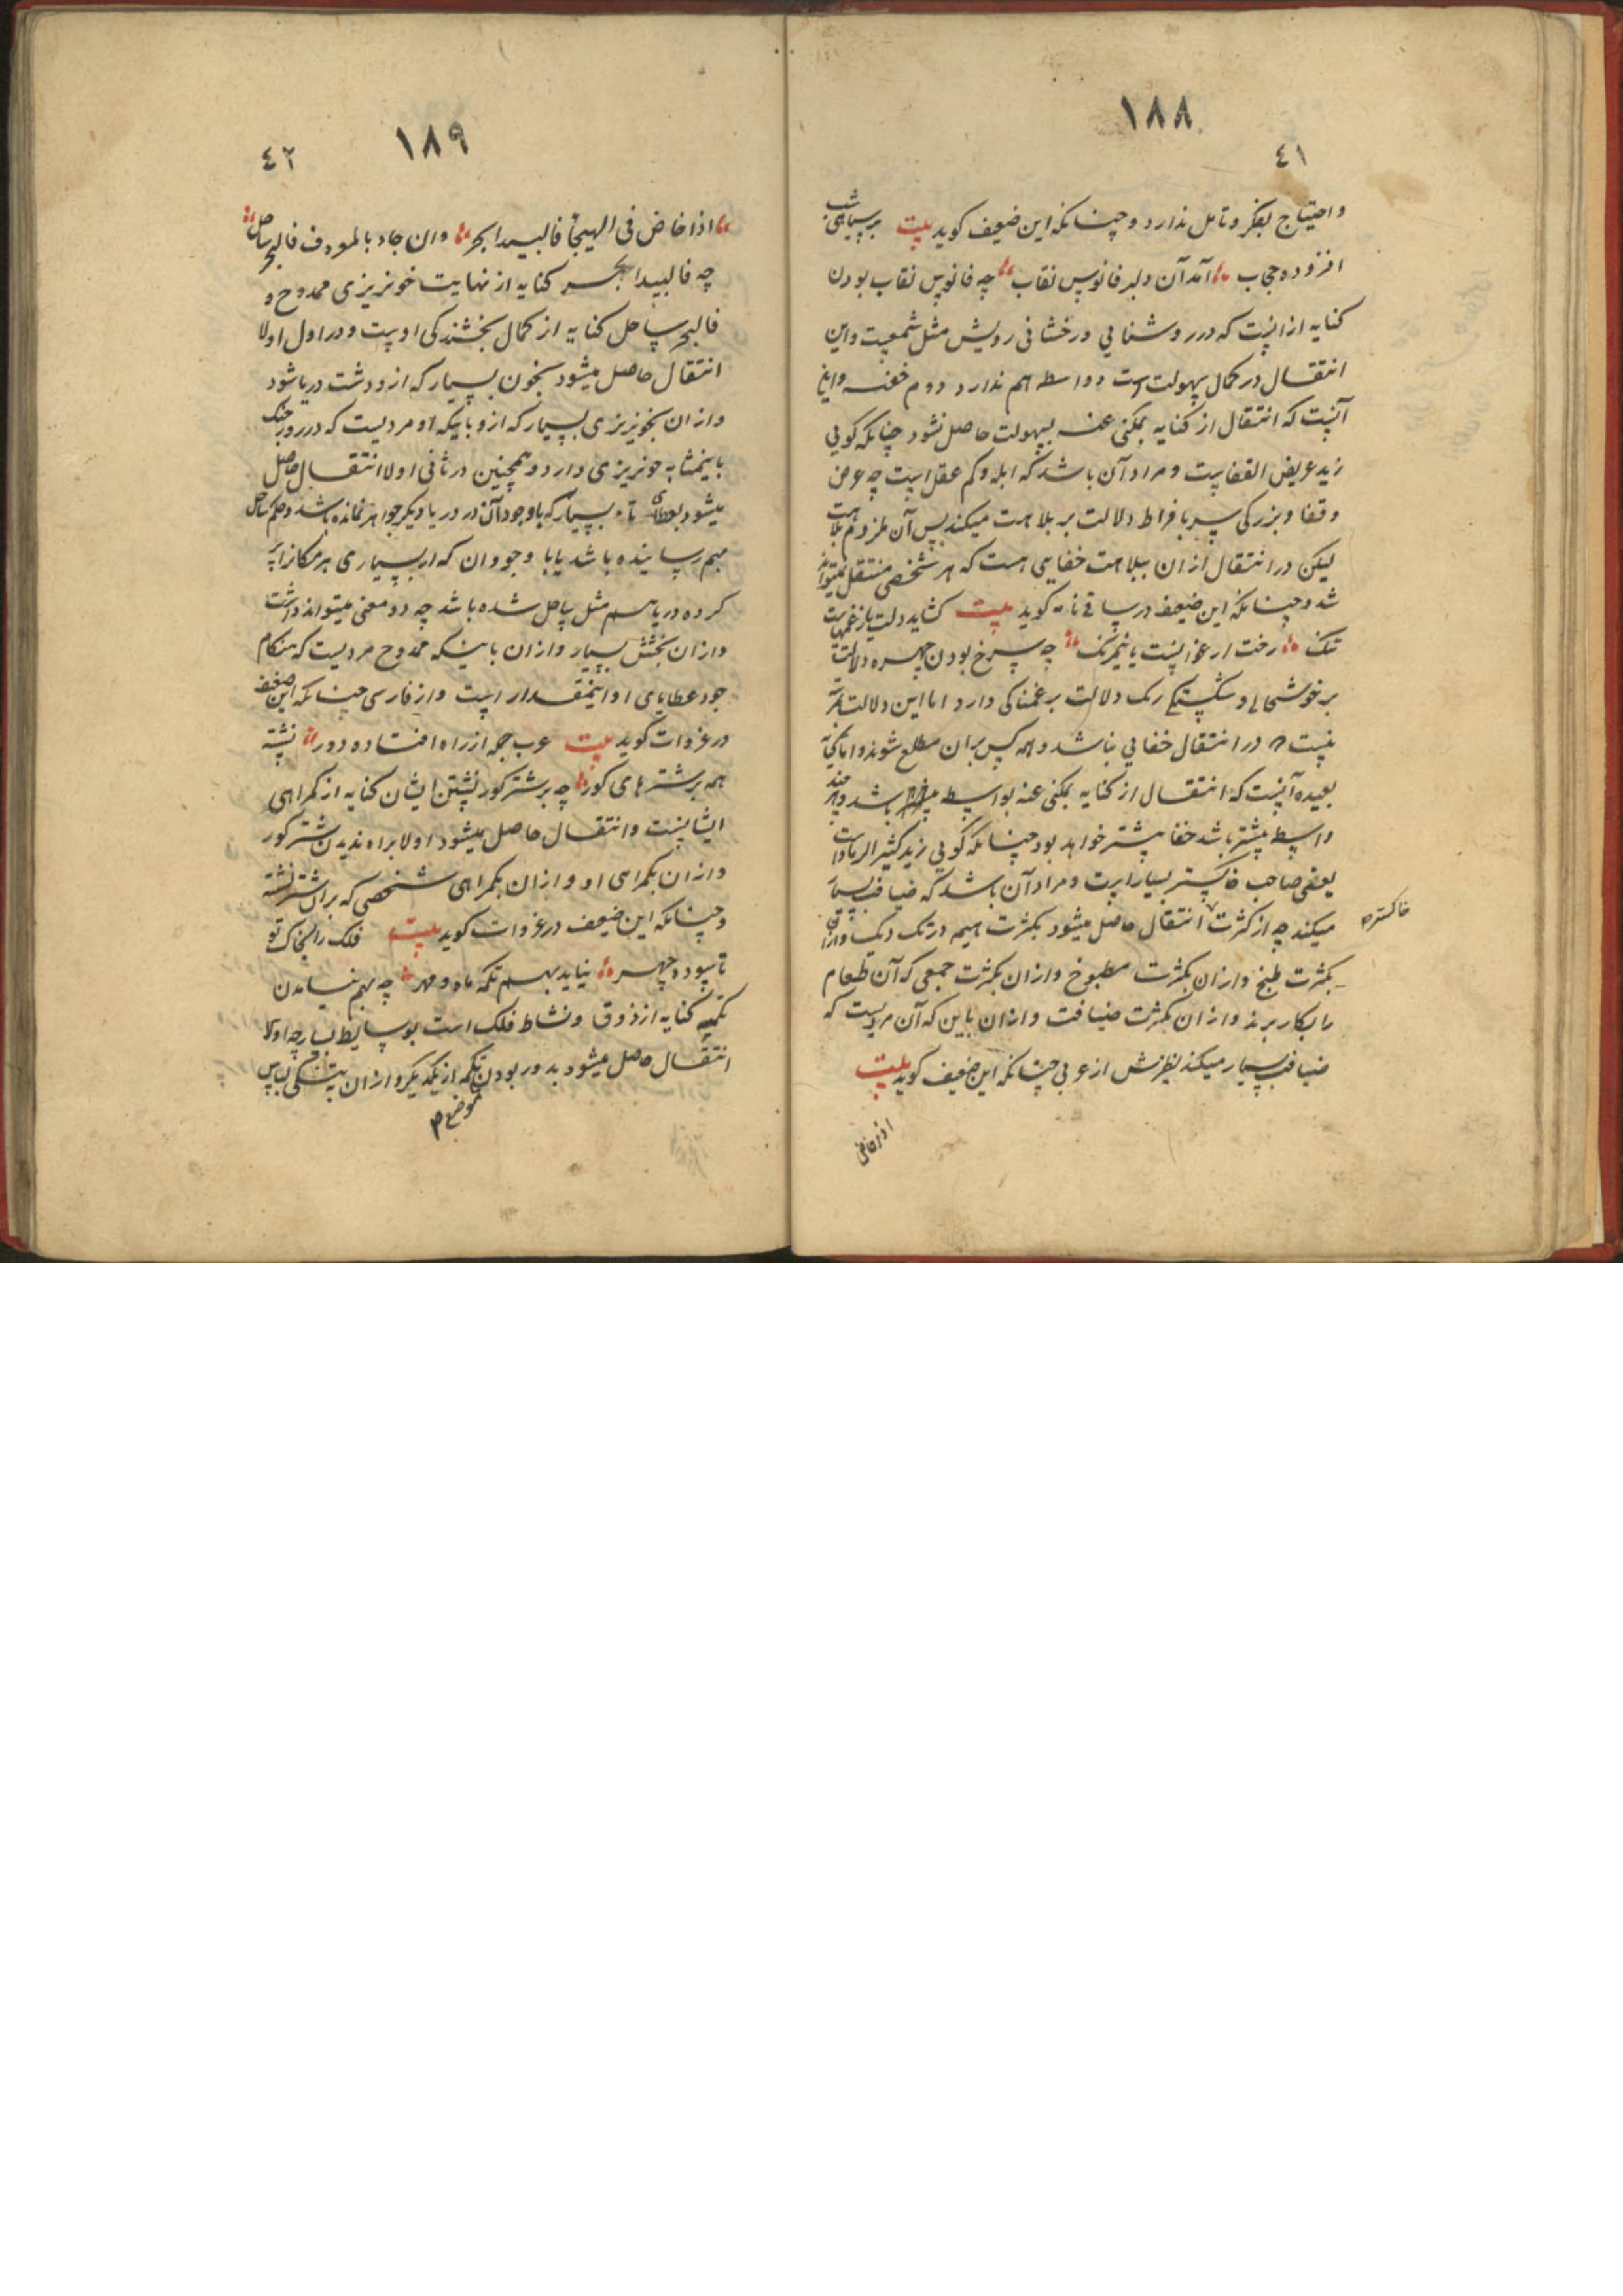 ١٨٨
٤١
و احتیاج بفکر و تامل ندارد و چنانکه این ضعیف کوید بیت بر سیاهی شب
افزوده حجاب آمد آن دلبر فانوس نقاب چه فانوس نقاب بودن
کنایه ازانست که در روشنایی و رخشانی رویش مثل شمعیست و این
انتقال در کمال سهولت است و واسطه هم ندارد دوم خفیه و این
آنست که انتقال از کنایه بمکنی عنه بسهولت حاصل نشود چنانکه کویی
زید عریض القفاست و مراد آن باشد که ابله و کم عقل است چه عرض
و قفا و بزرکی سر بافراط دلالت بر بلاهت میکند پس آن ملزوم بلاهت
لیکن در انتقال ازان ببلاهت خفایی هست که هر شخصی منتقل نمیتواند
شد و چنانکه این ضعیف در ساقی نامه کوید بیت کشاید دلت یا ز غمهاست
تنک رخت ارغوانیست یا نیمرنک چه سرخ بودن چهره دلالت
بر خوشحالی و شکستکی رنک دلالت بر غمناکی دارد اما این دلالت
نیست که در انتقال خفایی نباشد و همه کس بران مطلع شوند و اما کنایه
بعیده آنست که انتقال از کنایه بمکنی عنه بواسطه باشد و هر چند
واسطه بیشتر باشد خفا بیشتر خواهد بود چنانکه کویی زید کثیر الرماد است
یعنی صاحب خاکستر بسیار است و مراد آن باشد که ضیافت بسیار
میکند چه از کثرت انتقال حاصل میشود بکثرت هیمه در تک دیک و ازان
خاکستره
بکثرت طبخ و ازان بکثرت مطبوخ و ازان بکثرت جمعی که آن طعام
را بکار برند و ازان بکثرت ضیافت و ازان باین که آن مردیست که
ضیافت بسیار میکند نظرش از عربی چنانکه این ضعیف کوید بیت
اذا خاض فی
١٨٩
٤٢
اذا خاض فی الهیجأ فالبیدا بحر وان جاد بالمعروف فالبحر ساحل
چه فالبیدا بحر کنایه از نهایت خونریزی ممدوح و
فالبحر ساحل کنایه از کمال بخشندکی اوست و در اول اولا
انتقال حاصل میشود بخون بسیار که ازو دشت دریا شود
و ازان بخونریزی بسیار که ازو باینکه او مردیست که در روز جنک
باینمثابه خونریزی دارد و همچنین در ثانی اولا انتقال حاصل
میشود بعطای بسیار که با وجود آن در دریا دیکر جواهر نمانده باشد و حکم ساحل
بهم رسانیده باشد یا با وجود ان که از بسیاری هر مکانرا پر
کرده دریا هم مثل ساحل شده باشد چه دو معنی میتواند داشت
و ازان بخشش بسیار و ازان باینکه ممدوح مردیست که هنکام
جود عطایای او اینمقدار است و از فارسی چنانکه این ضعیف
در غزوات کوید بیت عرب جمله از راه افتاده دور نشسته
همه بر شترهای کور چه بر شتر کور نشستن ایشان کنایه از کمراهی
ایشانست و انتقال حاصل میشود اولا براه ندیدن شتر کور
و ازان بکمراهی او و ازان بکمراهی شخصی که بران شتر نشسته
و چنانکه این ضعیف در غزوات کوید بیت فلک را بخاک تو
تا سوده چهر نیاید بهم تکمه ماه و مهر چه بهم نیامدن
تکمه کنایه از ذوق و نشاط فلک است بوسایط بسیار چه اولا
انتقال حاصل میشود بدور بودن تکمه از یکدیکر و ازان بتنکی لباس
موضع م